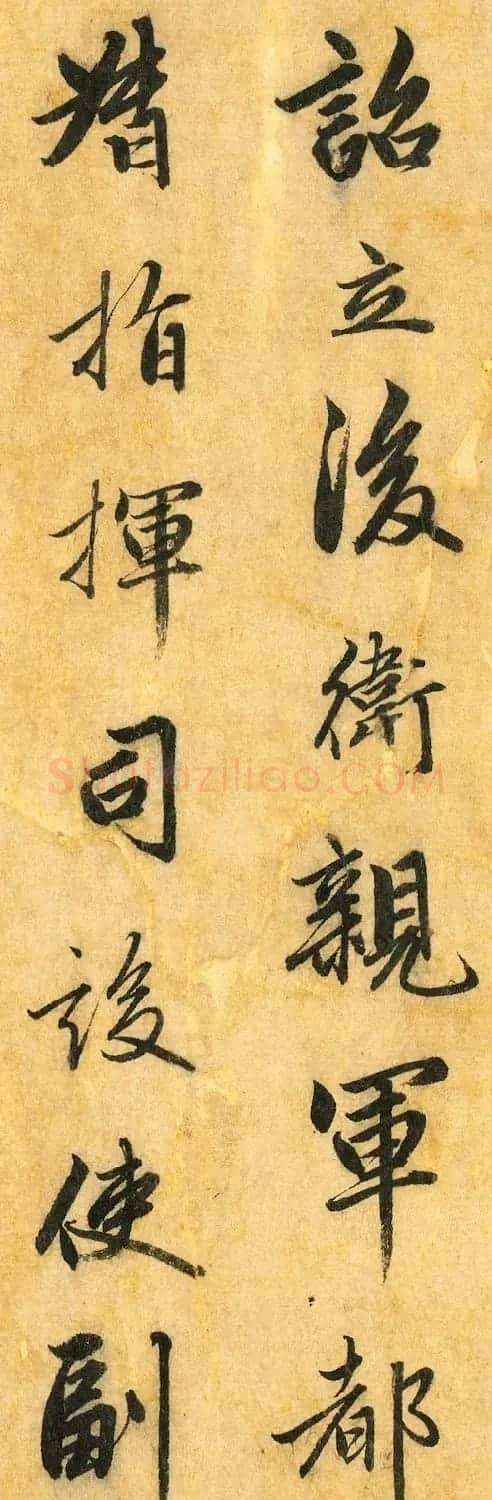 詔立後衛親軍都
指揮司設使副
Shufaziliao.COM